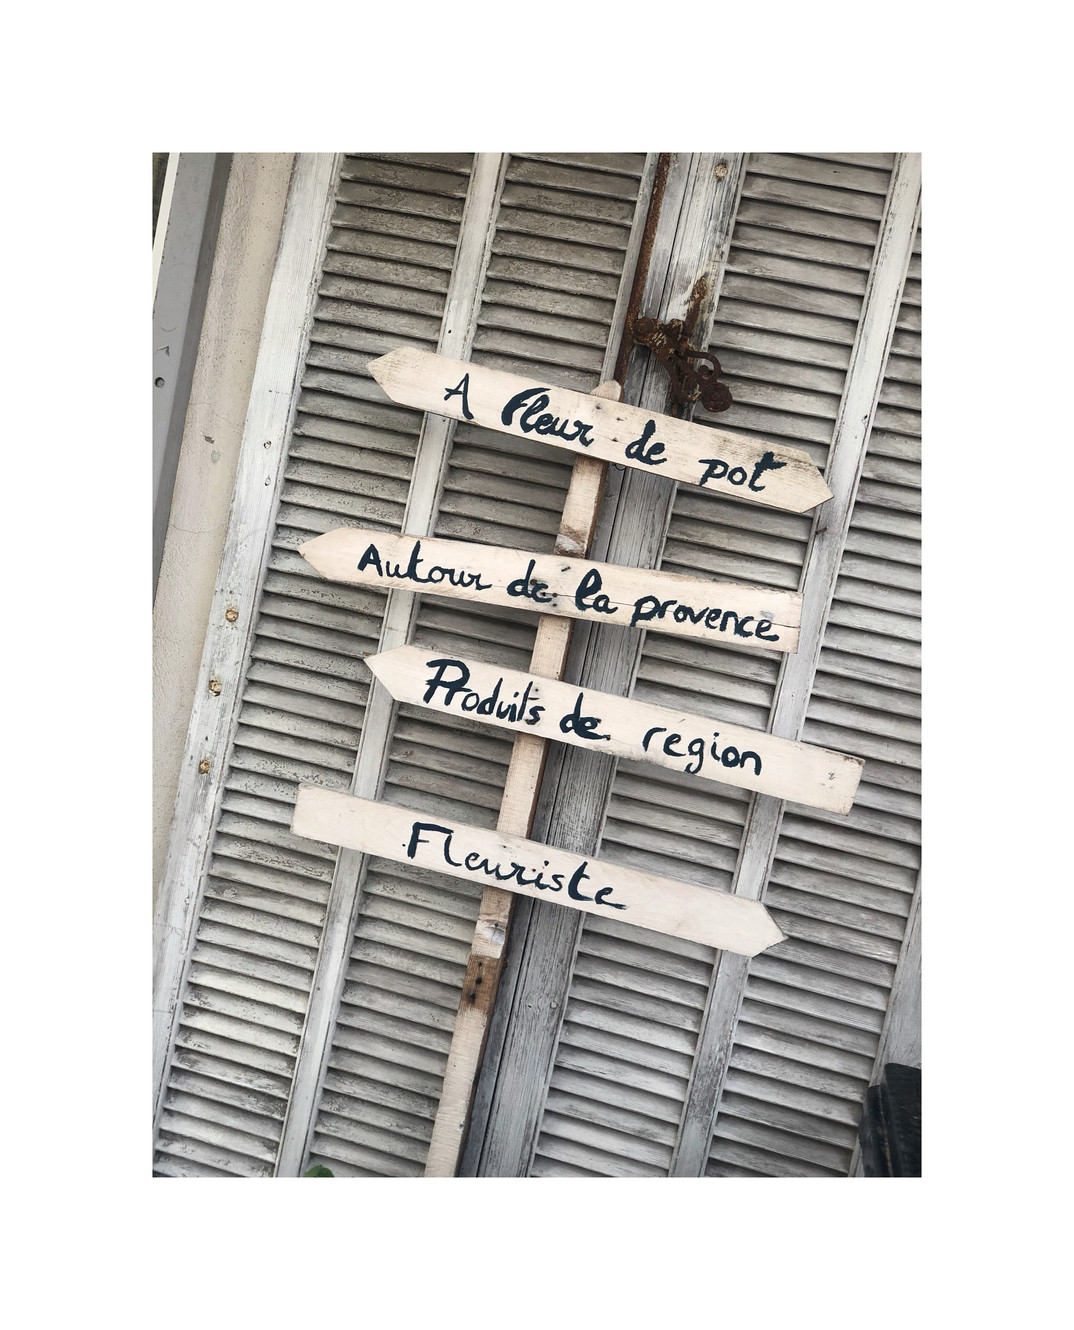 A fleur de pot
Autour de la provence
Produits de region
Fleuriste